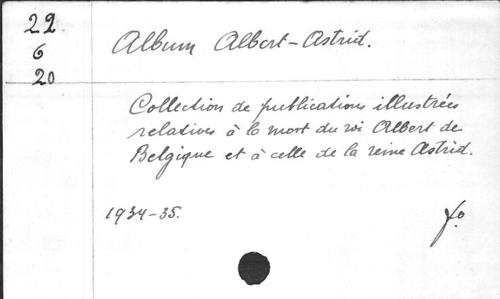 22
6
20
Album Albert-Astrid.
Collection de publications illustrées
relatives à la mort du roi Albert de
Belgique et à celle de la reine Astrid.
1934-35.
fo.